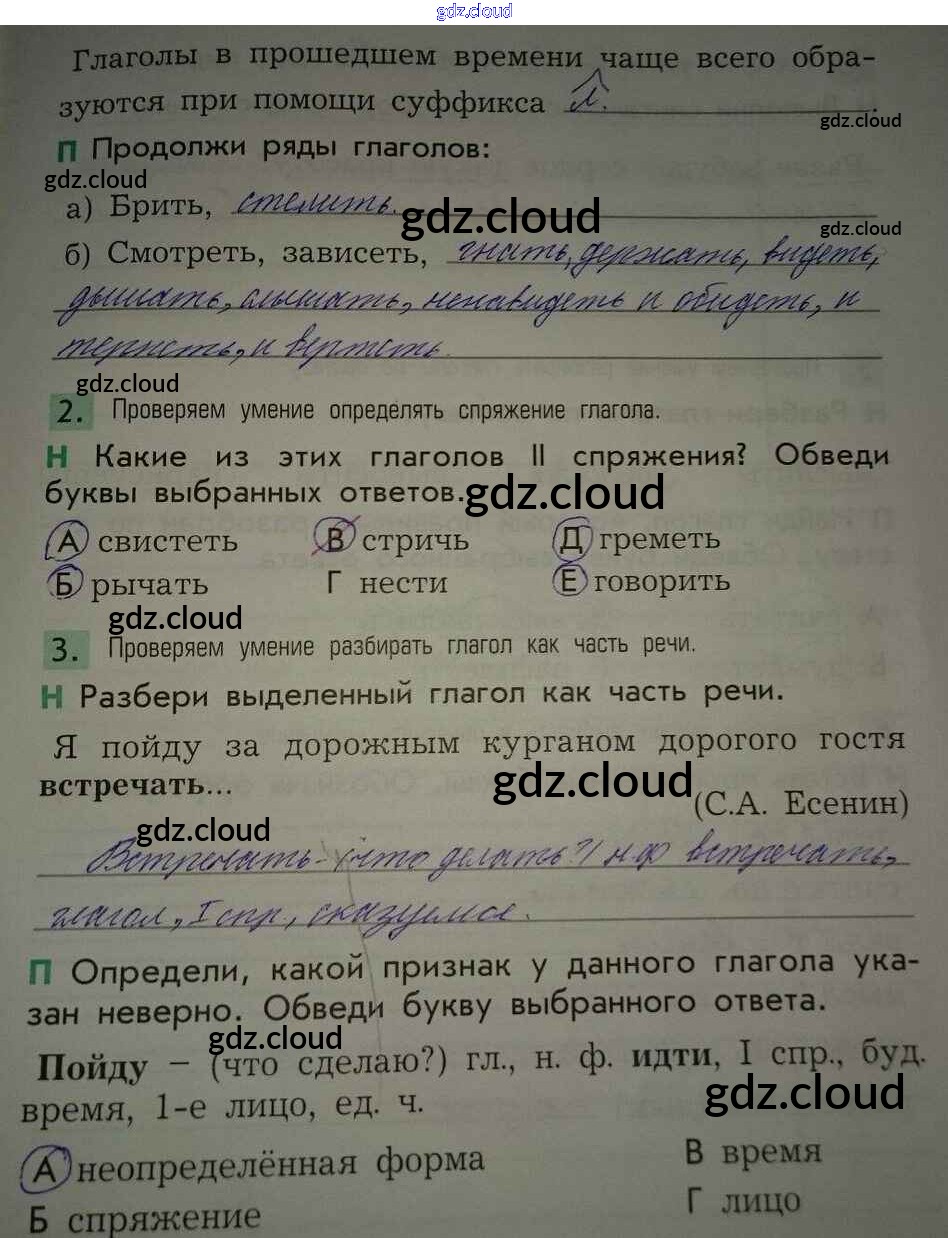 gdz.cloud
Глаголы в прошедшем времени чаще всего обра-
зуются при помощи суффикса л.
gdz.cloud
П Продолжи ряды глаголов:
gdz.cloud
а) Брить, стелить.
gdz.cloud
gdz.cloud
б) Смотреть, зависеть, гнать, держать, видеть,
дышать, слышать, ненавидеть и обидеть, и
терпеть, и вертеть.
gdz.cloud
2. Проверяем умение определять спряжение глагола.
Н Какие из этих глаголов II спряжения? Обведи
буквы выбранных ответов.
gdz.cloud
А свистеть В стричь Д греметь
Б рычать Г нести Е говорить
gdz.cloud
3. Проверяем умение разбирать глагол как часть речи.
Н Разбери выделенный глагол как часть речи.
Я пойду за дорожным курганом дорогого гостя
встречать...
gdz.cloud
(С.А. Есенин)
gdz.cloud
Встречать - (что делать?) н.ф встречать,
глагол, I спр, сказуемое.
П Определи, какой признак у данного глагола ука-
зан неверно. Обведи букву выбранного ответа.
gdz.cloud
Пойду – (что сделаю?) гл., н. ф. идти, I спр., буд.
время, 1-е лицо, ед. ч.
gdz.cloud
А неопределённая форма В время
Б спряжение Г лицо